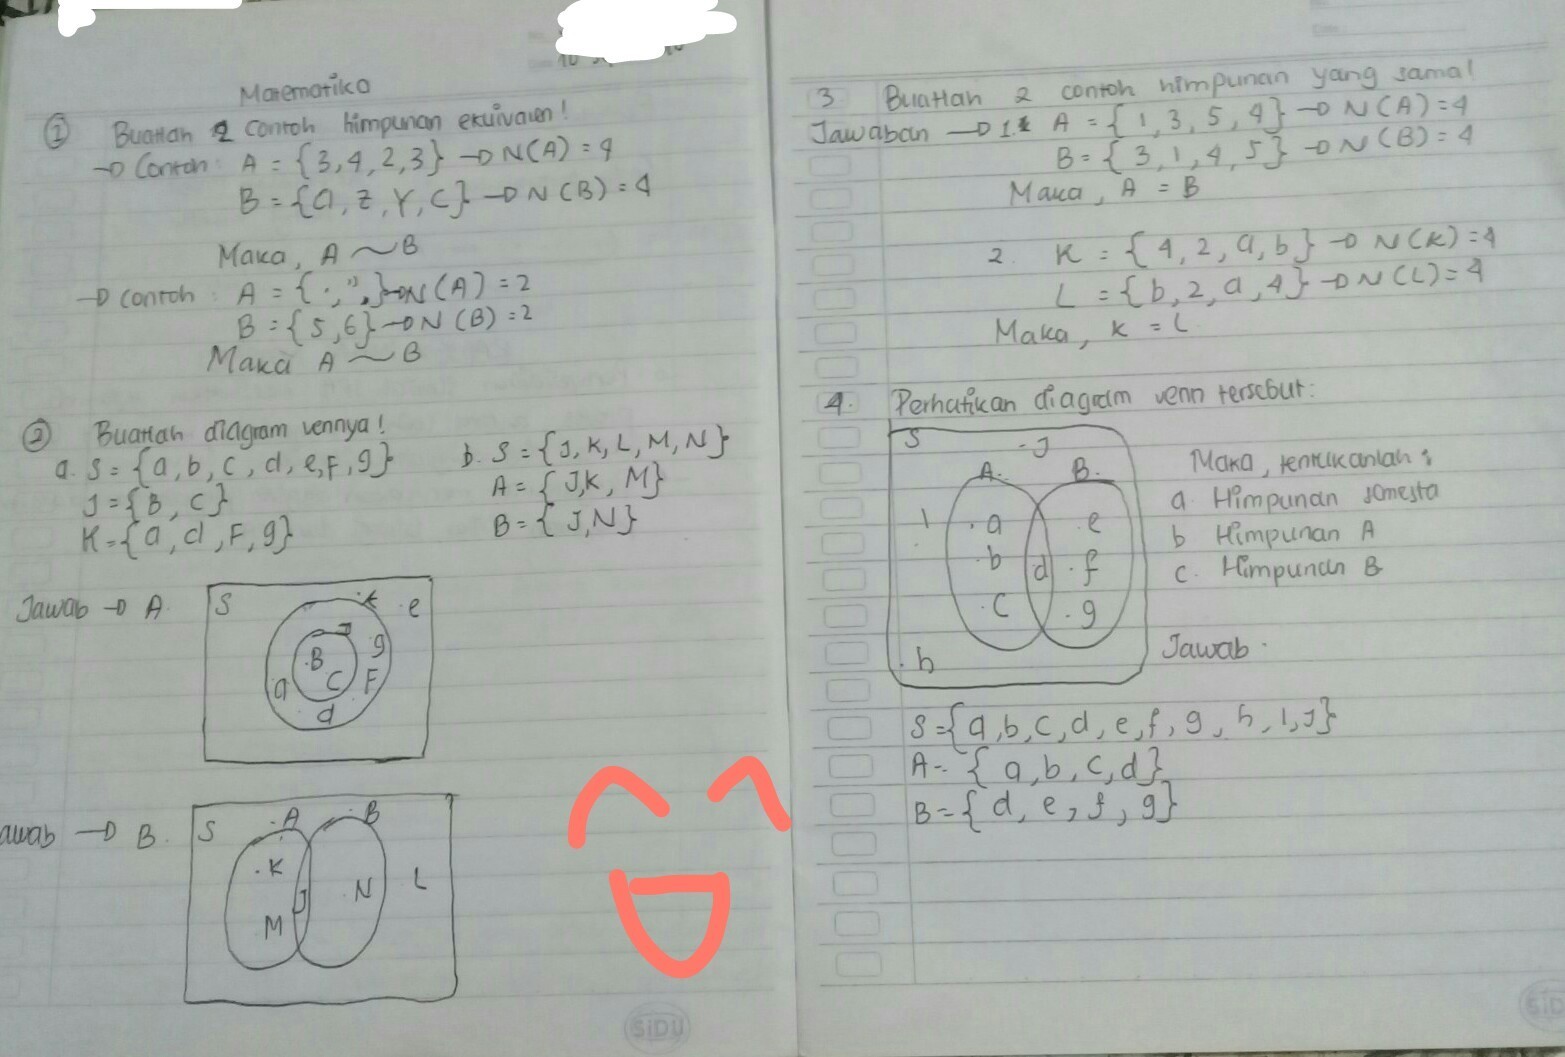 Matematika
① Buatlah 2 Contoh himpunan ekuivalen!
→ Contoh: A = {3,4,2,3} → N(A) = 4
B = {a, z, Y, C} → N(B) = 4
Maka, A ~ B
→ Contoh: A = {·, ", } → N(A) = 2
B = {5,6} → N(B) = 2
Maka A ~ B
② Buatlah diagram vennya!
a. S = {a, b, c, d, e, F, g}
J = {B, C}
K = {a, d, F, g}
b. S = {J, K, L, M, N}
A = {J, K, M}
B = {J, N}
Jawab → A.
S K e
J
B g
a C F
d
awab → B.
S A B
K
J N L
M
SIDU
3 Buatlah 2 contoh himpunan yang sama!
Jawaban → 1. A = {1, 3, 5, 4} → N(A) = 4
B = {3, 1, 4, 5} → N(B) = 4
Maka, A = B
2. K = {4, 2, a, b} → N(K) = 4
L = {b, 2, a, 4} → N(L) = 4
Maka, K = L
4. Perhatikan diagram venn tersebut:
S J
A. B.
I a e
b d f
c g
h
Maka, tentukanlah:
a. Himpunan semesta
b Himpunan A
c. Himpunan B
Jawab.
S = {a, b, c, d, e, f, g, h, I, J}
A = {a, b, c, d}
B = {d, e, f, g}
SID